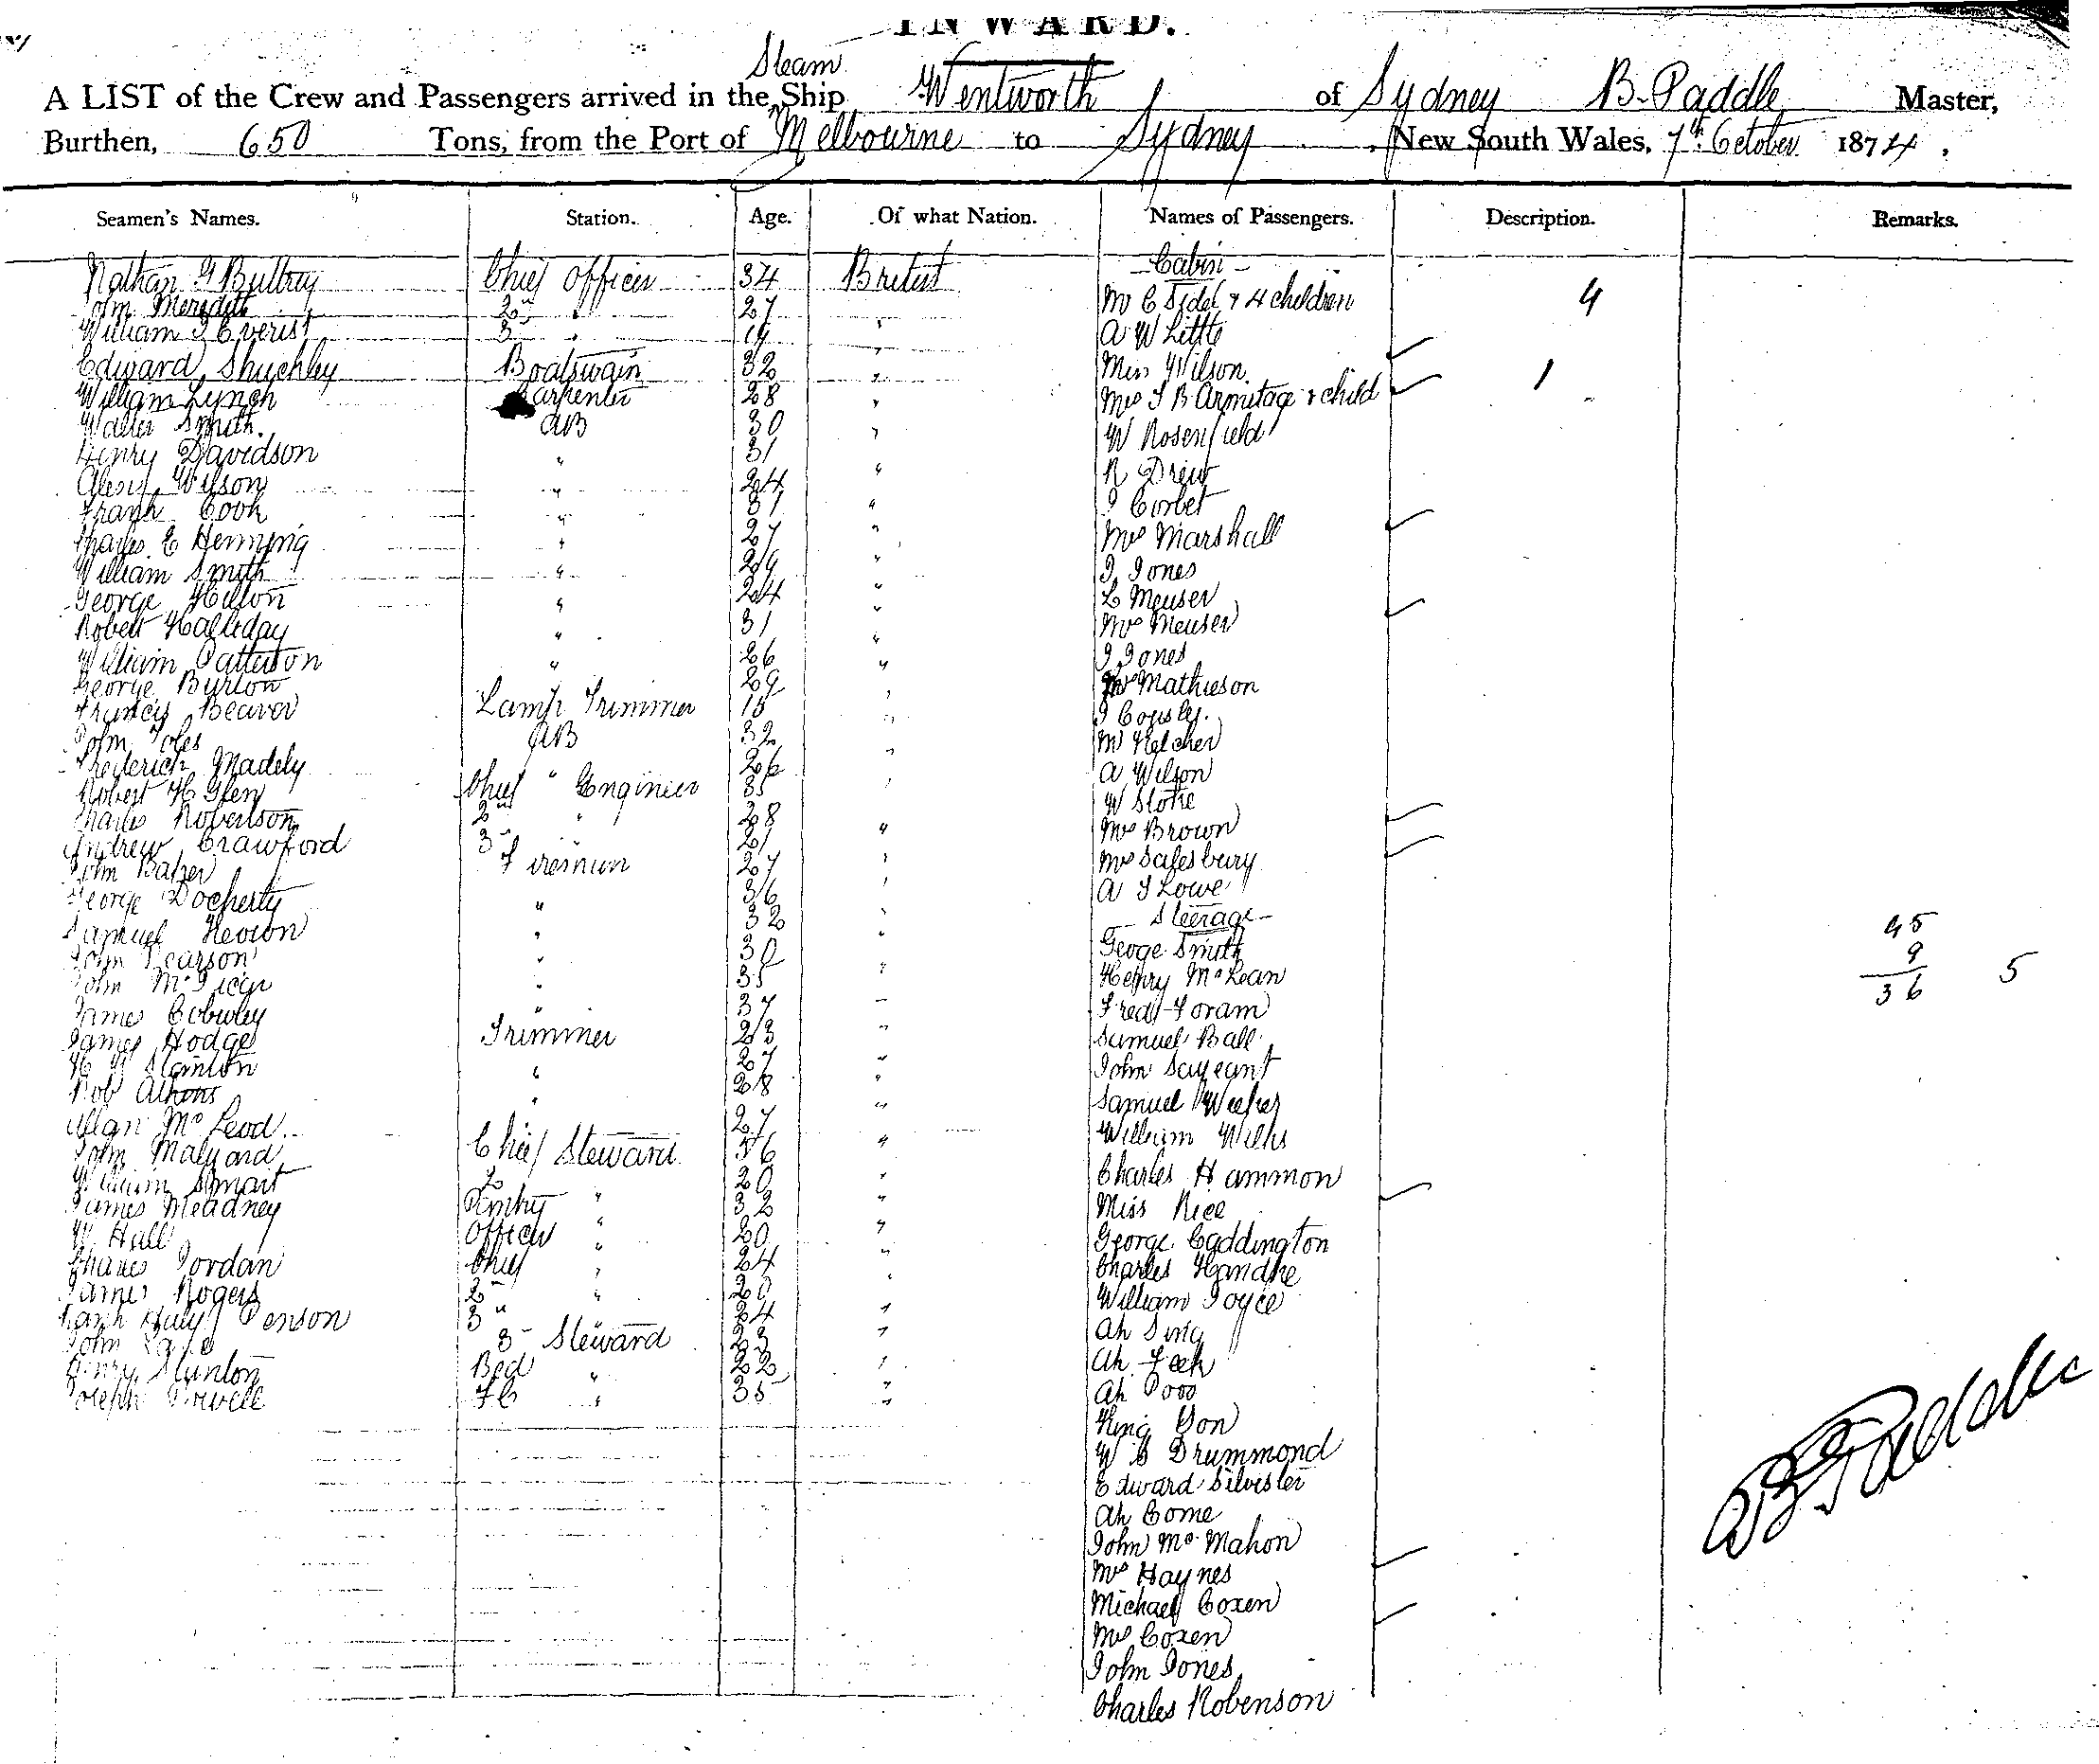 INWARD.
Steam
A LIST of the Crew and Passengers arrived in the Ship Wentworth of Sydney B. Paddle Master,
Burthen, 650 Tons, from the Port of Melbourne to Sydney, New South Wales, 7th October 1874.
Seamen's Names. Station. Age. Of what Nation. Names of Passengers. Description. Remarks.
Cabin
Nathan Chief Officer 34 British
John Meredith 2nd " 27 M C & 4 children 4
William Everist 3 " 19 " A W Little
Edward Boatswain 32 " Miss Wilson
William Lynch Carpenter 28 " Mrs J B Armitage & child 1
Walter Smith. AB 30 " W Rosenfield
Henry Davidson " 31 " R Drew
Wilson " 24 " J Corbet
Frank Cook " 31 " Mrs Marshall
Charles E Henning " 27 " J Jones
William Smith " 29 " L Meuser
George Hilton " 24 " Mrs Meuser
Robert Halliday " 31 " J Jones
William Patterson " 26 " Mathieson
George Burton " 29 " J
Francis Beaver Lamp Trimmer 15 " M
John AB 32 " A Wilson
Frederick Madely " 26 " W
Robert H Glen Chief Engineer 35 " Mrs Brown
Charles Robertson 2nd " 28 Mrs Salesbury
Andrew Crawford 3 " 21 " A J Lowe
John Baker Fireman 27 " Steerage
George Docherty " 36 " George Smith
Samuel " 32 " Henry McLean 45
John Pearson " 30 " Fred Foram 9
John " 35 " Samuel Ball 36 5
James " 37 " John Sargeant
James Hodge Trimmer 23 " Samuel
H Stanton " 27 " William
Rob " 28 " Charles Hammon
Allan McLeod 27 " Miss Rice
John Malyard Chief Steward 56 " George Caddington
William Smart 2 " 20 " Charles
James Meadney Pantry " 32 " William Joyce
W Hall Officer " 20 " Ah Sing
Charles Jordan Chief " 24 " Ah
James Rogers 2 " 20 " Ah Pooo
Penson 3 " 24 " King Yon
John 3 Steward 23 " W Drummond
Henry Stunton Bed " 22 " Edward Silvister
Joseph " 35 " Ah Come
John McMahon
Mrs Haynes
Michael Coxen
Mrs Coxen
John Jones
Charles Robenson
B Paddle